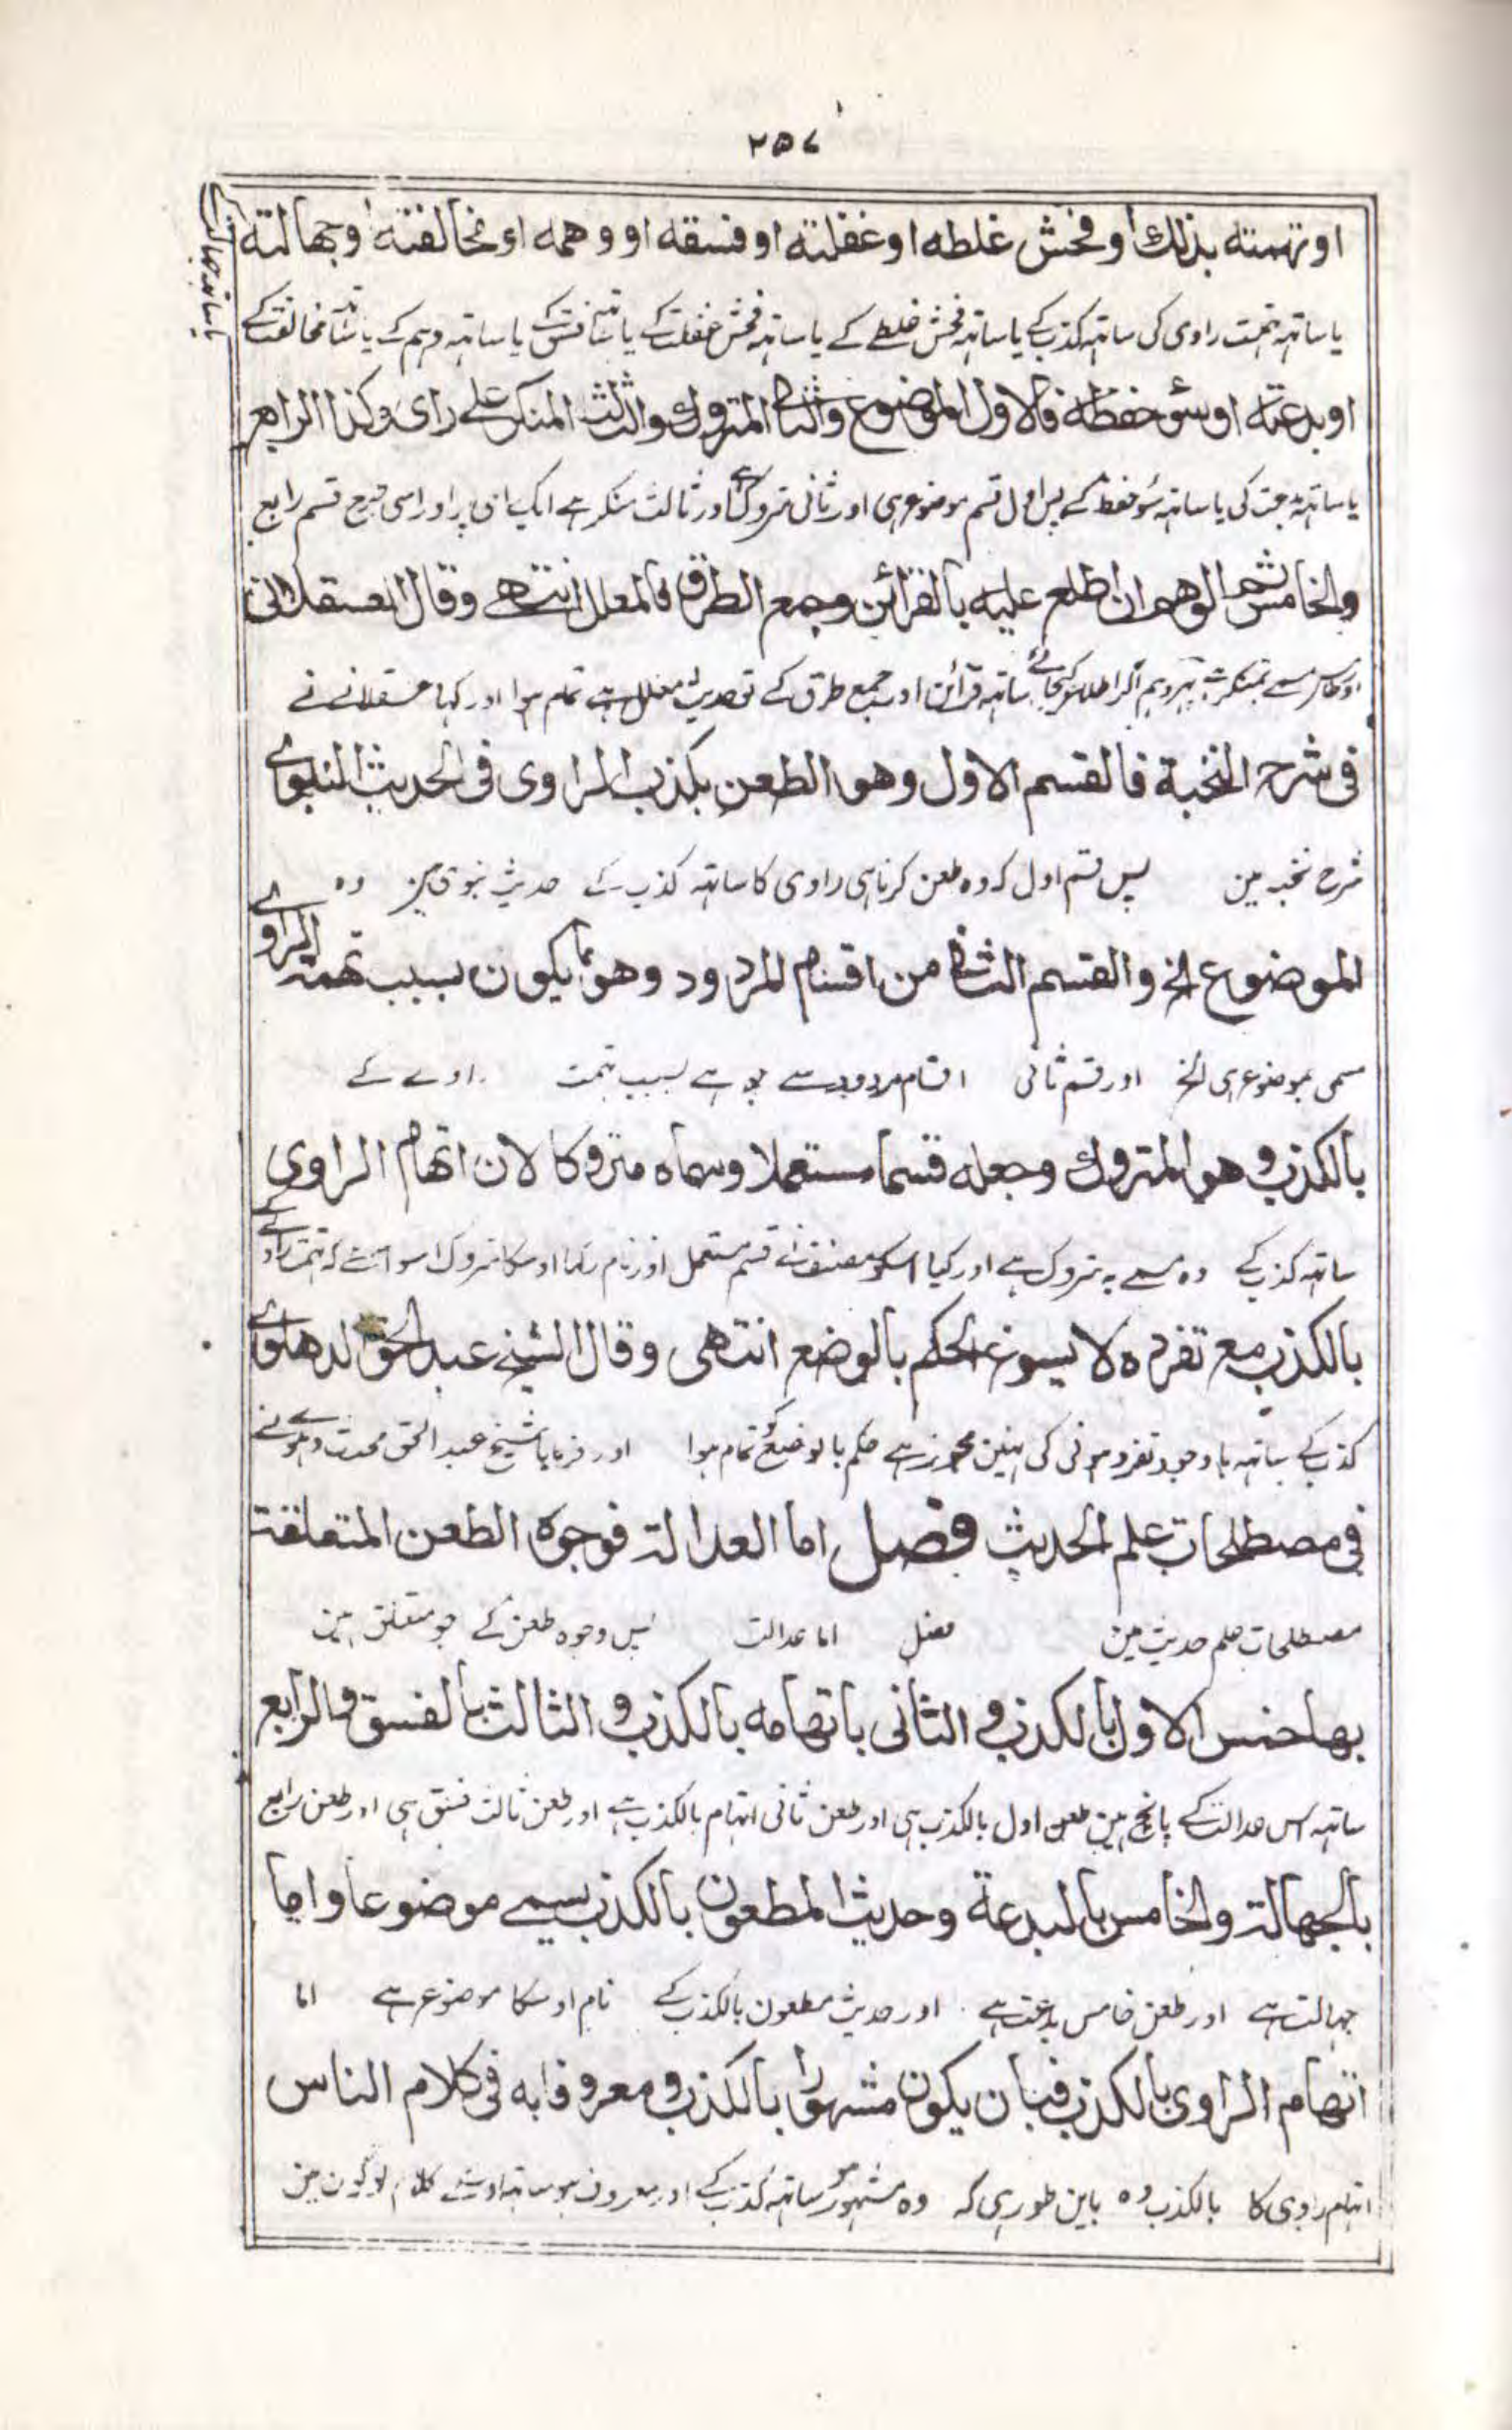 ٢٥٧
او تهمته بذلك او فحش غلطه او غفلته او فسقه او وهمه او مخالفته او جهالته
یا ساتہ تہمت راوی کی ساتہ کذب کے یا ساتہ فحش غلطے کے یا ساتہ فحش غفلت کے یا ساتہ فسق کے یا ساتہ وہم کے یا ساتہ مخالفت کے
یا ساتہ جہالت کے
او بدعته او سوء حفظه فالاول الموضوع والثانی المتروك والثالث المنكر علے رای وكذا الرابع
یا ساتہ بدعت کی یا ساتہ سوء حفظ کے پس اول قسم موضوع ہی اور ثانی متروک ہے اور ثالث منکر ہے ایک رای پر اور اسی طرح قسم رابع
والخامس ثم الوهم ان اطلع عليه بالقرائن وجمع الطرق فالمعلل انتهے وقال العسقلانی
ساتہ قرائن اور جمع طرق کے تو حدیث معلل ہے تمام ہوا اور کہا عسقلانے نے
فی شرح النخبة فالقسم الاول وهو الطعن بكذب الراوی فی الحديث النبوے
شرح نخبہ مین پس قسم اول کہ وہ طعن کرنا ہی راوی کا ساتہ کذب کے حدیث نبوی مین وہ
الموضوع الخ والقسم الثانی من اقسام المردود وهو ما يكون بسبب تهمة الراوے
مسمی بموضوع ہی الخ اور قسم ثانی اقسام مردود سے جو ہے بسبب تہمت راوے کے
بالكذب وهو المتروك وجعله قسما مستعملا وسماه متروكا لان اتهام الراوی
ساتہ کذب کے وہ مسمے بہ متروک ہے اور کیا اسکو مصنف نے قسم مستعمل اور نام رکہا اوسکا متروک اسواسطے کہ تہمت راوے کے
بالكذب مع تفرده لا يسوغ الحكم بالوضع انتهی وقال الشيخ عبد الحق الدهلوے
کذب کے ساتہ باوجود تفرد ہونی کی نہین مجوز ہے حکم بالوضع کو تمام ہوا اور فرمایا شیخ عبد الحق محدث دہلوے نے
فی مصطلحات علم الحديث فصل اما العدالة فوجوه الطعن المتعلقة
مصطلحات علم حدیث مین فصل اما عدالت پس وجوہ طعن کے جو متعلق ہین
بها خمس الاول بالكذب والثانی باتهامه بالكذب والثالث بالفسق والرابع
ساتہ اس عدالت کے پانچ ہین طعن اول بالکذب ہی اور طعن ثانی اتہام بالکذب ہے اور طعن ثالث فسق ہی اور طعن رابع
بالجهالة والخامس بالبدعة وحديث المطعون بالكذب يسمے موضوعا واما
جہالت ہے اور طعن خامس بدعت ہے اور حدیث مطعون بالکذب کے نام اوسکا موضوع ہے اما
اتهام الراوی بالكذب فبان يكون مشهورا بالكذب ومعروفا به فی كلام الناس
اتہام راوی کا بالکذب وہ باین طور ہی کہ وہ مشہور ہو ساتہ کذب کے اور معروف ہو ساتہ اوسکے کلام لوگون مین